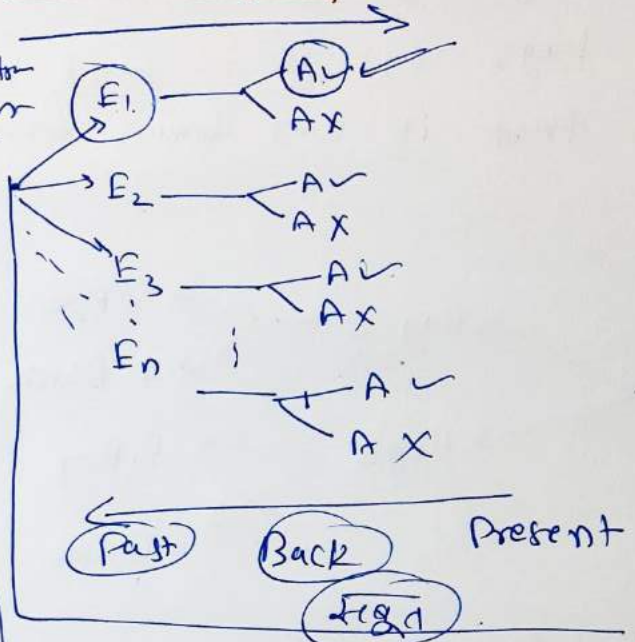 E1 A✓
AX
E2 A✓
AX
E3 A✓
AX
En
A✓
AX
Past Back Present